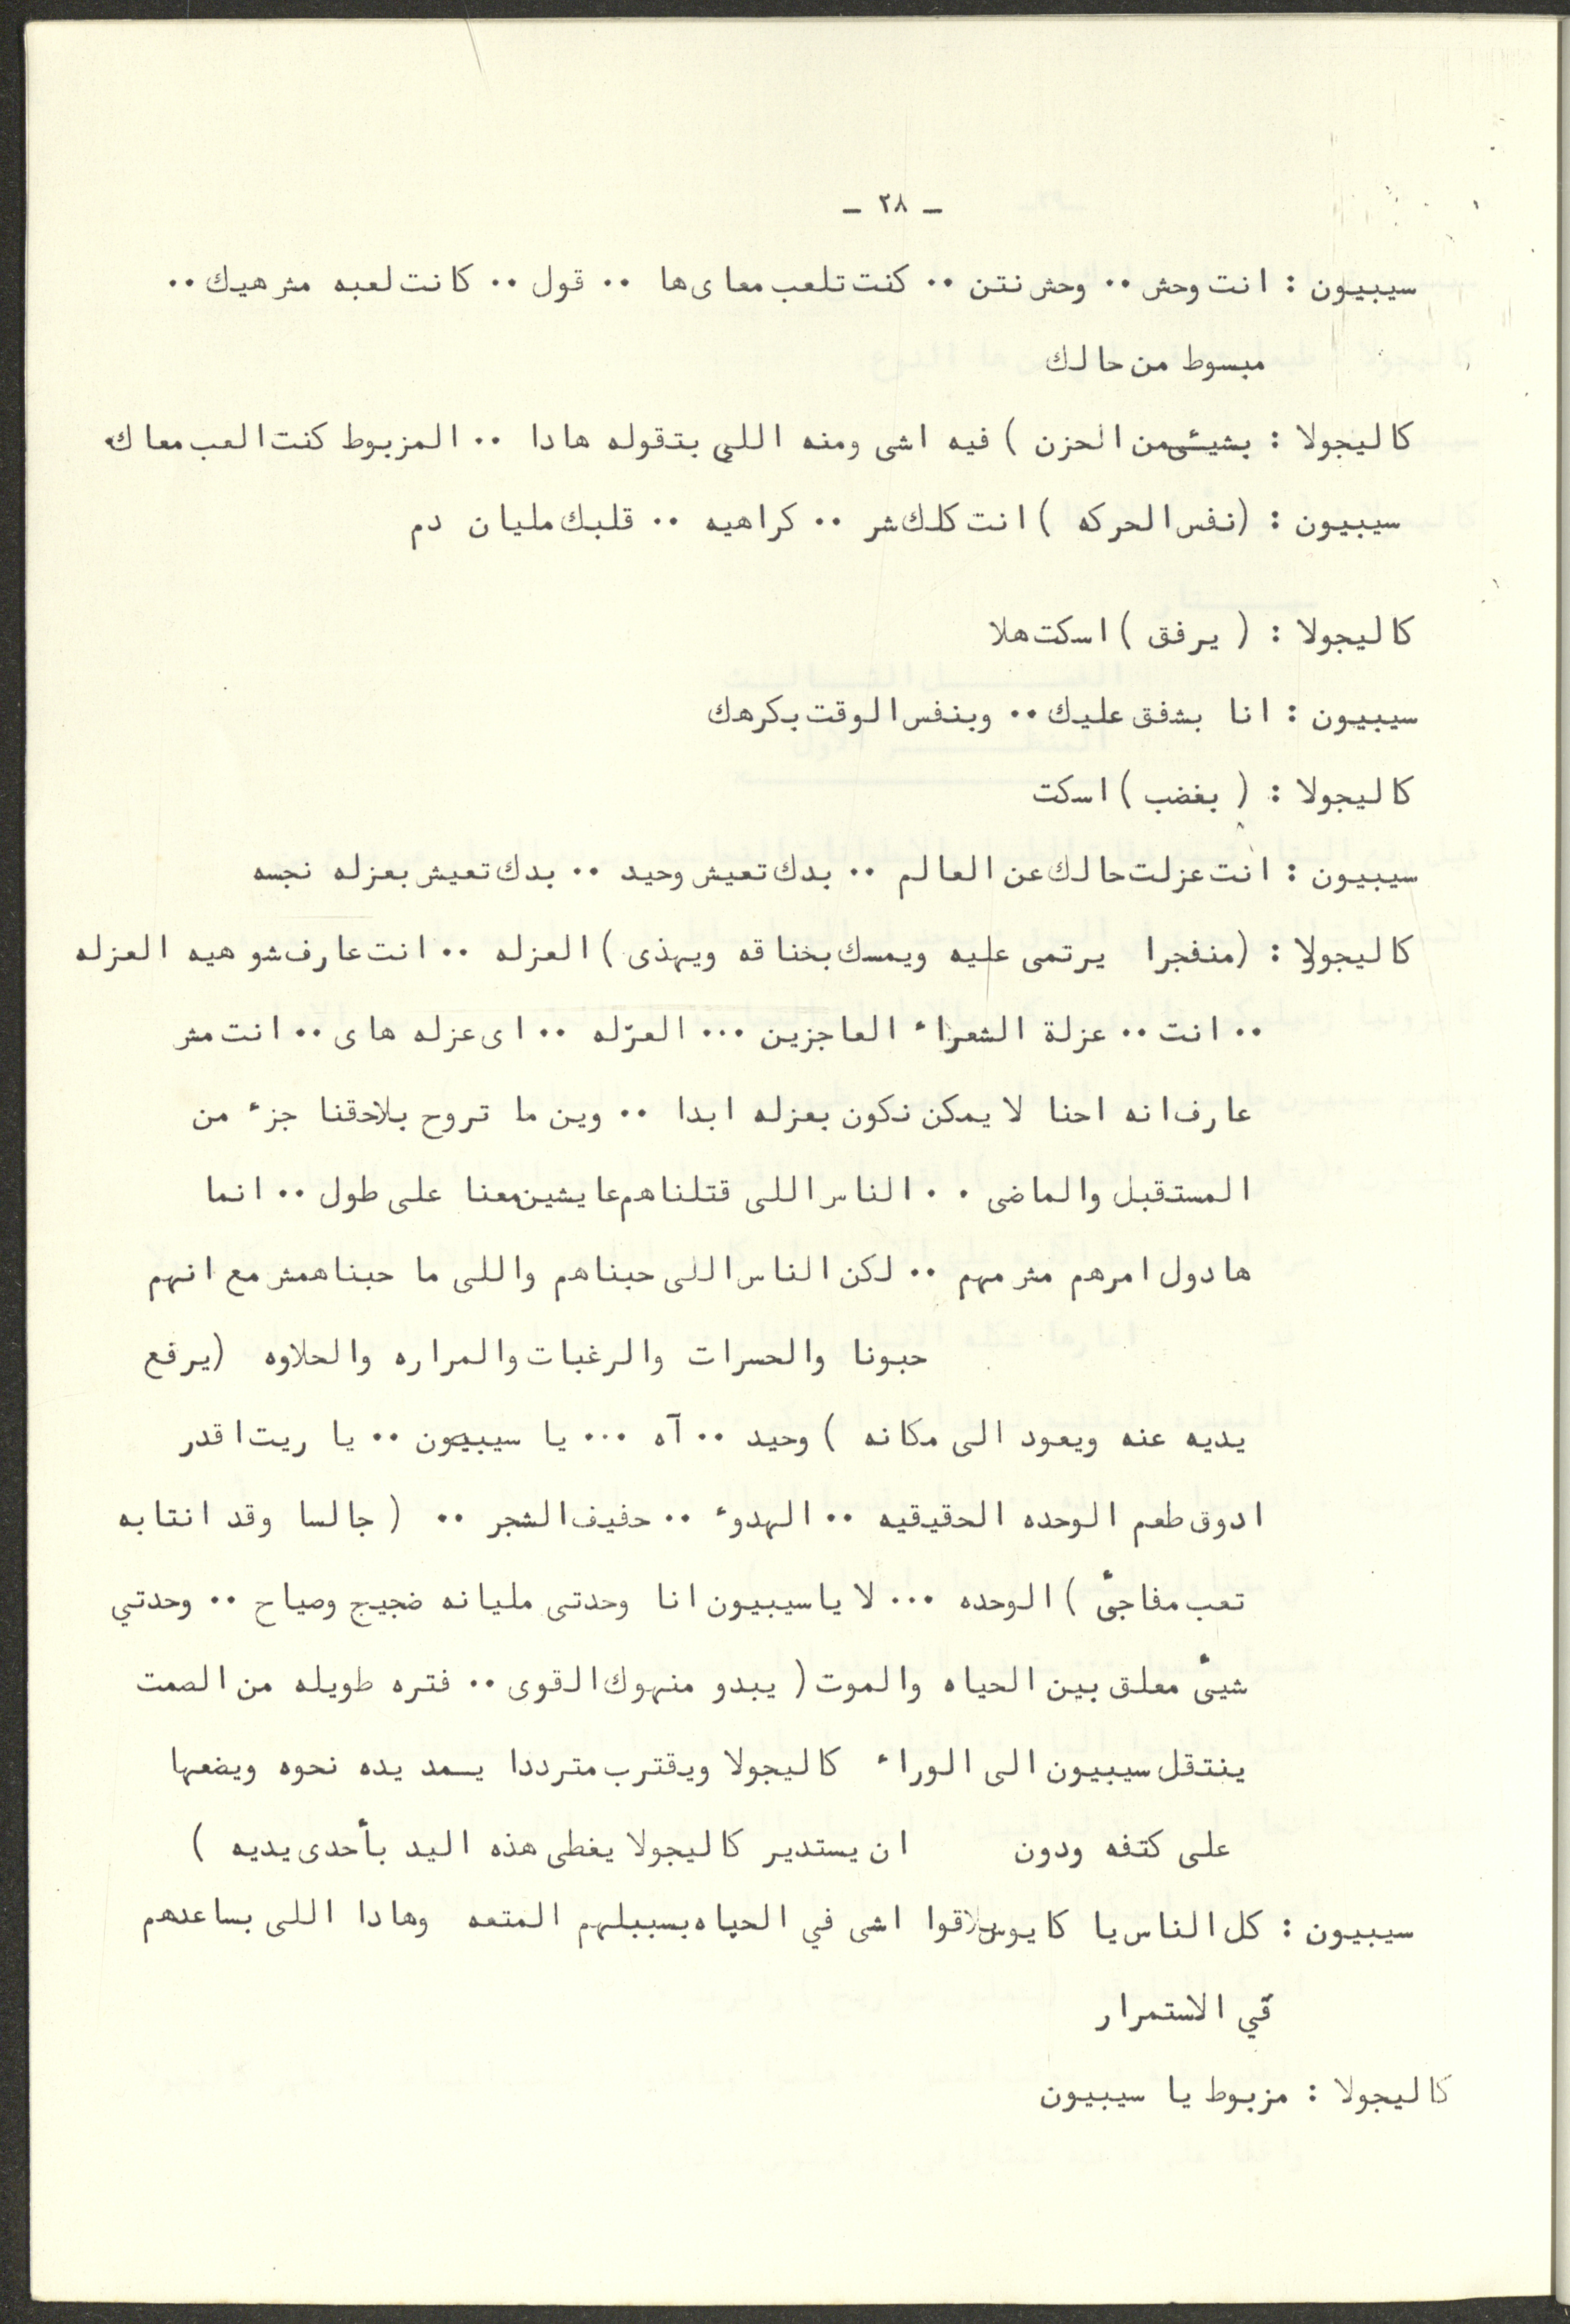 - ٢٨ -
سيبيون : انت وحش .. وحش نتن .. كنت تلعب معاى ها .. قول .. كانت لعبه مش هيك ..
مبسوط من حالك
كاليجولا : بشيئى من الحزن ) فيه اشى ومنه اللي بتقوله هادا .. المزبوط كنت العب معاك
سيبيون : (نفس الحركه ) انت كلك شر .. كراهيه .. قلبك مليان دم
كاليجولا : ( يرفق ) اسكت هلا
سيبيون : انا بشفق عليك .. وبنفس الوقت بكرهك
كاليجولا : ( بغضب ) اسكت
سيبيون : انت عزلت حالك عن العالم .. بدك تعيش وحيد .. بدك تعيش بعزله نجسه
كاليجولا : (منفجرا يرتمى عليه ويمسك بخناقه ويهذى ) العزله .. انت عارف شو هيه العزله
.. انت .. عزلة الشعراء العاجزين ... العزله .. اى عزله هاى .. انت مش
عارف انه احنا لا يمكن نكون بعزله ابدا .. وين ما تروح بلاحقنا جزء من
المستقبل والماضى .. الناس اللى قتلناهم عايشين معنا على طول .. انما
هادول امرهم مش مهم .. لكن الناس اللى حبناهم واللى ما حبناهمش مع انهم
حبونا والحسرات والرغبات والمراره والحلاوه (يرفع
يديه عنه ويعود الى مكانه ) وحيد .. آه ... يا سيبيون .. يا ريت اقدر
ادوق طعم الوحده الحقيقيه .. الهدوء .. حفيف الشجر .. ( جالسا وقد انتابه
تعب مفاجئ ) الوحده ... لا يا سيبيون انا وحدتى مليانه ضجيج وصياح .. وحدتي
شيئ معلق بين الحياه والموت ( يبدو منهوك القوى .. فتره طويله من الصمت
ينتقل سيبيون الى الوراء كاليجولا ويقترب مترددا يمد يده نحوه ويضعها
على كتفه ودون ان يستدير كاليجولا يغطى هذه اليد بأحدى يديه )
سيبيون : كل الناس يا كايوس بلاقوا اشى في الحياه بسببلهم المتعه وهادا اللى بساعدهم
في الاستمرار
كاليجولا : مزبوط يا سيبيون